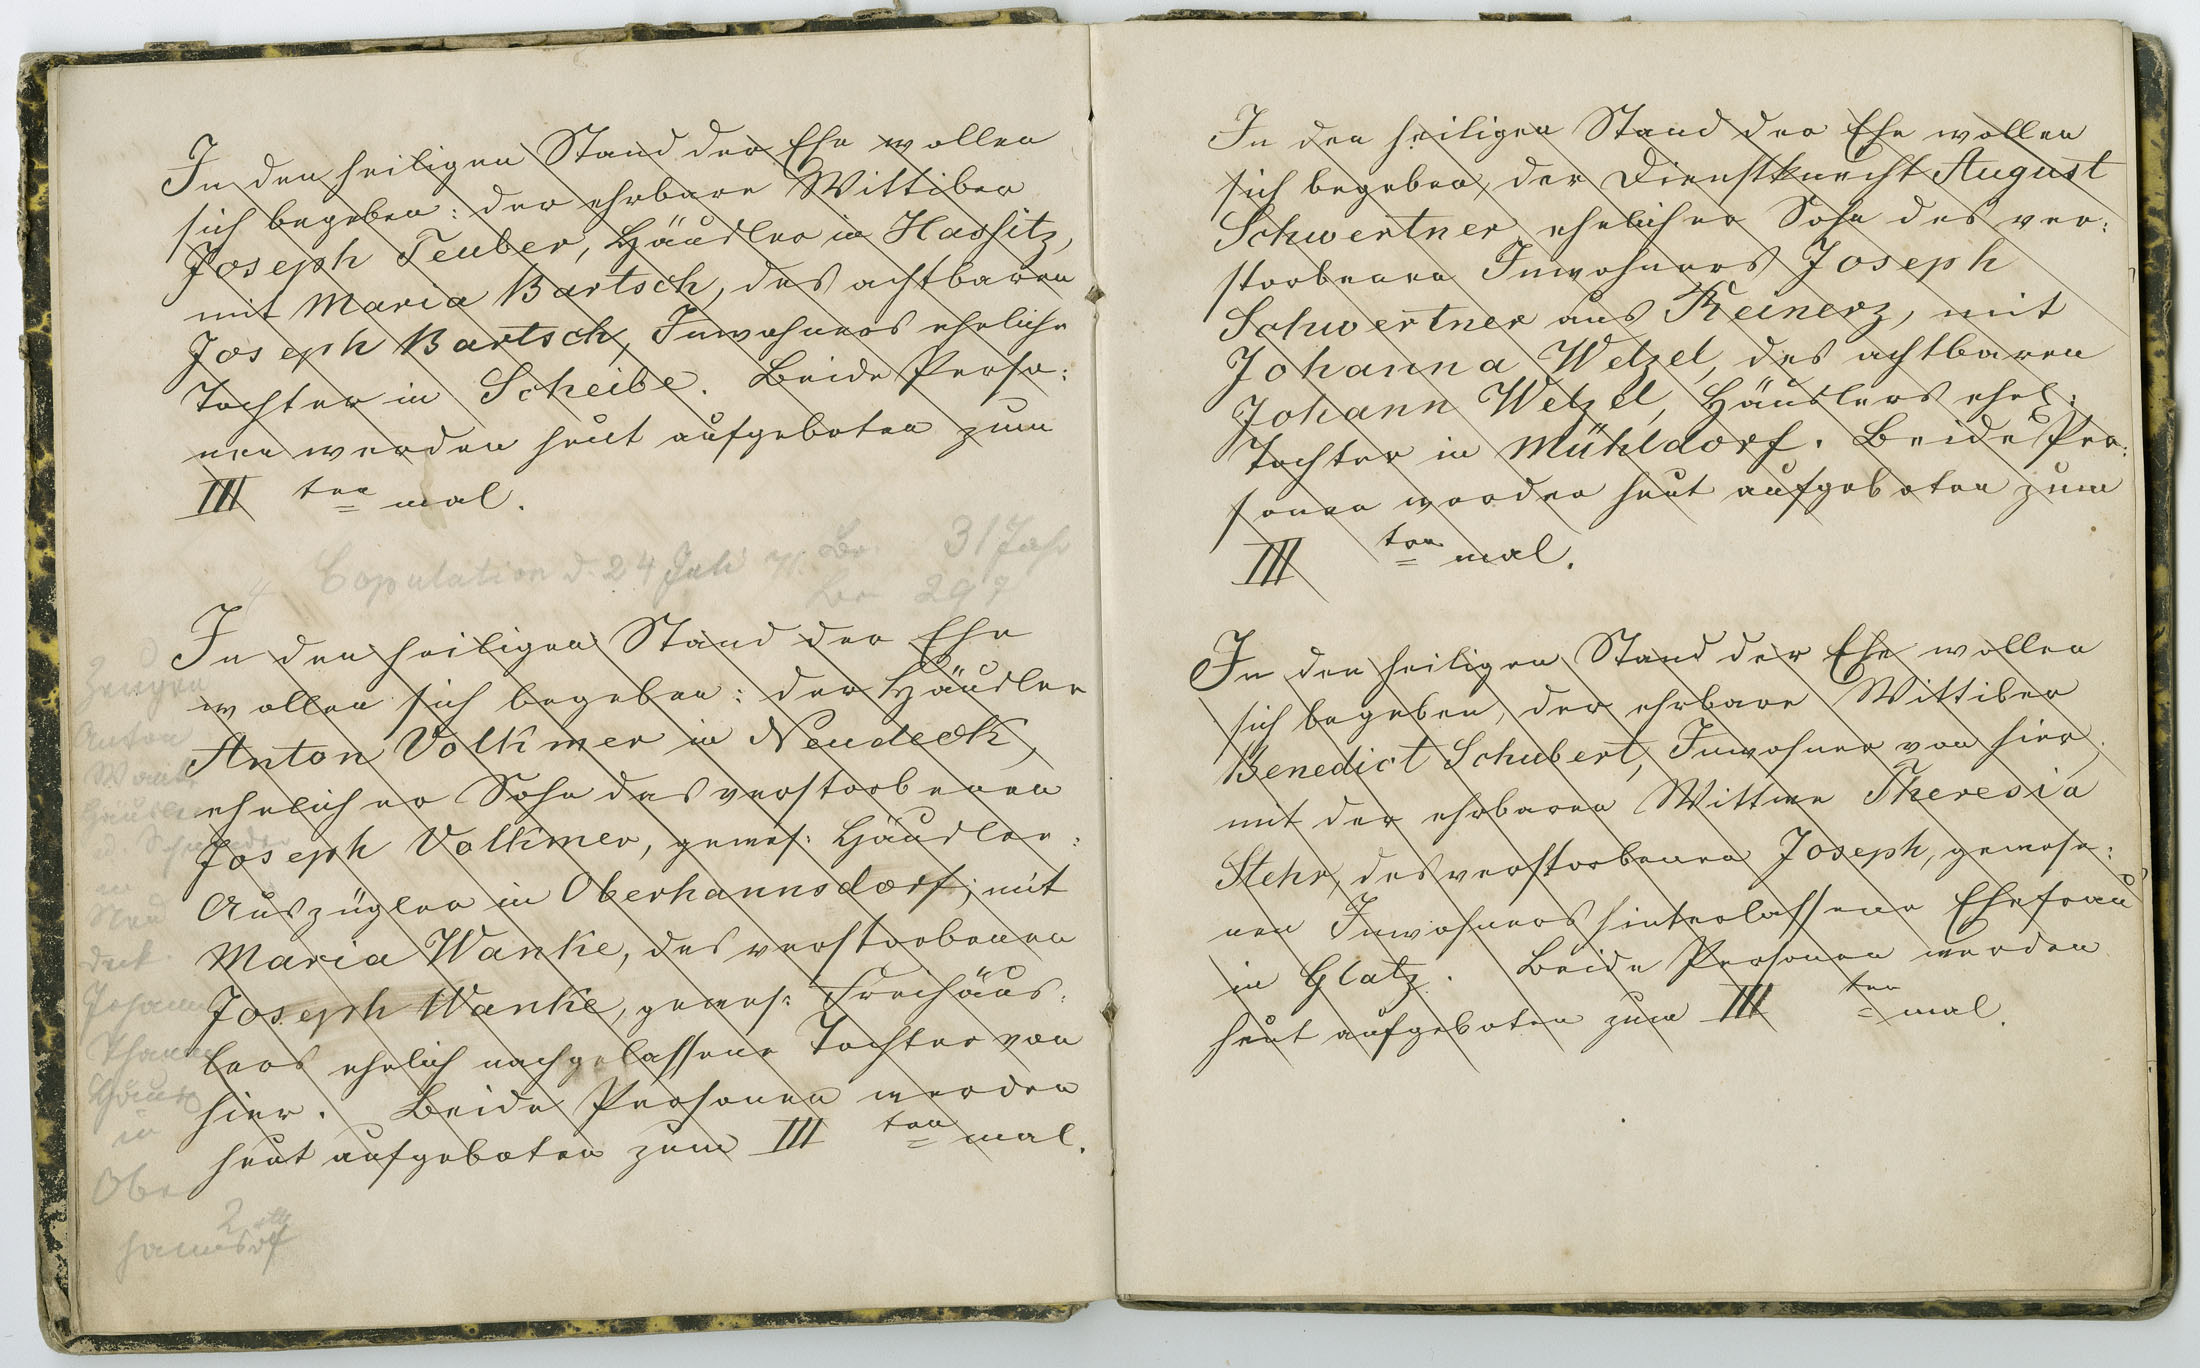 In den heiligen Stand der Ehe wollen
sich begeben: der ehrbare Wittiber
Joseph Teuber, Häudler in Hassitz,
mit Maria Bartsch, des achtbaren
Joseph Bartsch, Inwohners eheliche
Tochter in Scheibe. Beide Perso:
nen werden heut aufgeboten zum
III ten mal.
Copulation d. 24 Juli 31 Jahr
29
In den heiligen Stand der Ehe
wollen sich begeben: der Häudler
Anton Volkmer in Neudeck,
ehelicher Sohn des verstorbenen
Joseph Volkmer, gewes: Häudler:
Auszügler in Oberhannsdorf; mit
Maria Wanke, des verstorbenen
Joseph Wanke, gewes: Freihäus:
lers ehelich nachgelassene Tochter von
hier. Beide Personen werden
heut aufgeboten zum III ten mal.
Zeugen
Anton
in
Neu
deck.
Johann
in
Ober
hannsdorf
In den heiligen Stand der Ehe wollen
sich begeben, der Dienstknecht August
Schwertner, ehelicher Sohn des ver:
storbenen Inwohners Joseph
Schwertner aus Reinerz, mit
Johanna Welzel, des achtbaren
Johann Welzel, Häuslers ehel:
Tochter in Mühldorf. Beide Per:
sonen werden heut aufgeboten zum
III ten mal.
In den heiligen Stand der Ehe wollen
sich begeben, der ehrbare Wittiber
Benedict Schubert, Inwohner von hier,
mit der ehrbaren Wittwe Theresia
Stehr, des verstorbenen Joseph, gewese:
nen Inwohners hinterlassene Ehefrau
in Glatz. Beide Personen werden
heut aufgeboten zum III ten mal.